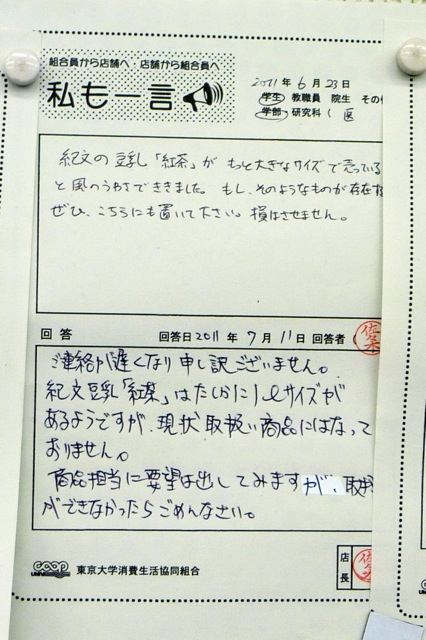 組合員から店舗へ 店舗から組合員へ
私も一言
2011年6月23日
学生 教職員 院生 その
学部 研究科( 医
紀文の豆乳「紅茶」がもっと大きなサイズで売っている
と風のうわさでききました。もし、そのようなものが存在す
ぜひ、こちらにも置いて下さい。損はさせません。
回答 回答日2011年7月11日 回答者
ご連絡が遅くなり申し訳ございません。
紀文豆乳「紅茶」はたしかに1ℓサイズが
あるようですが、現状取扱い商品にはなって
おりません。
商品担当に要望は出してみますが、取扱
ができなかったらごめんなさい。
coop 東京大学消費生活協同組合
店長